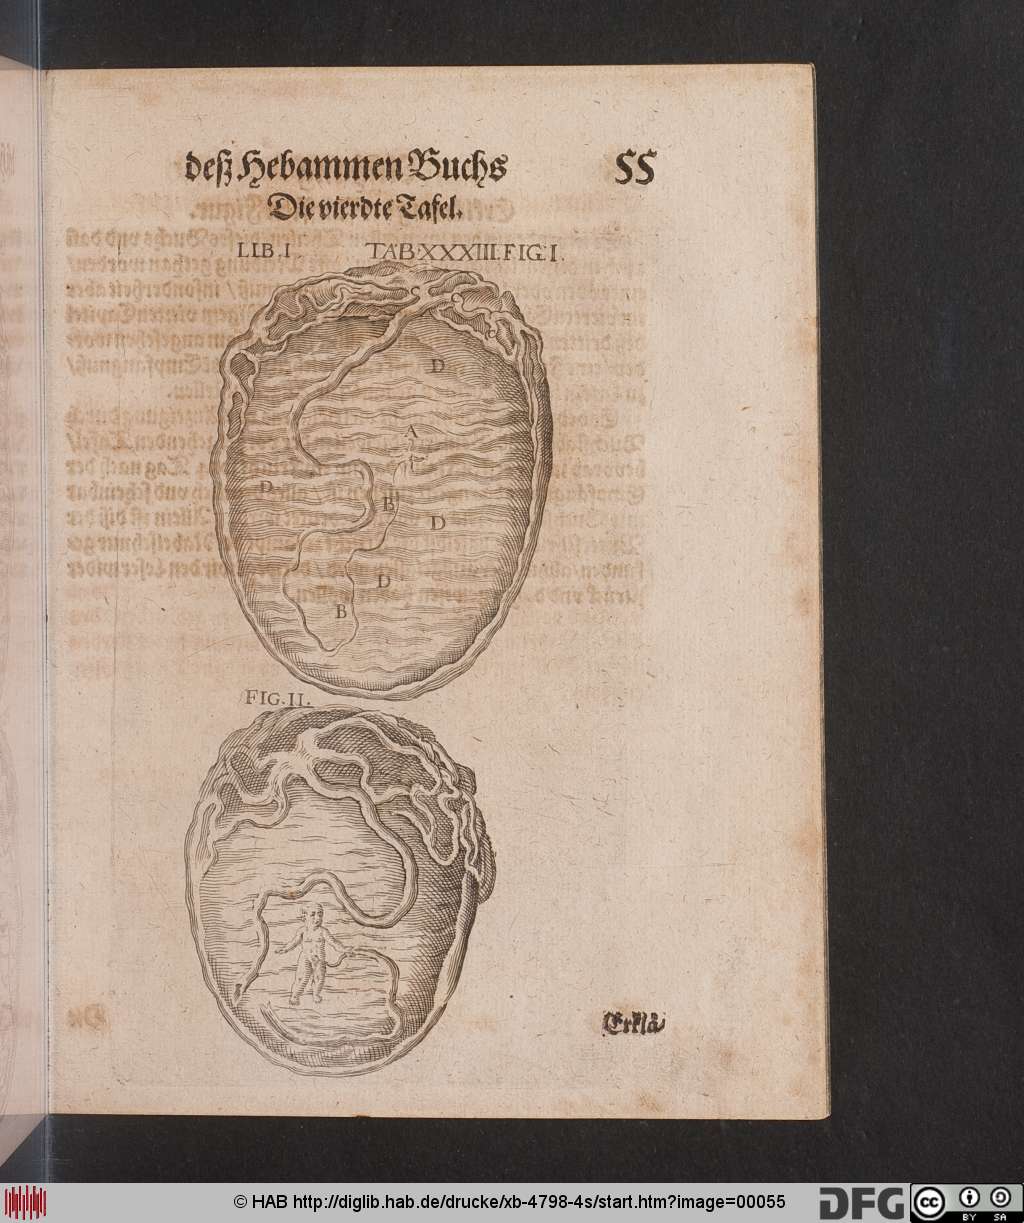 deß Hebammen Buchs 55
Die vierdte Tafel.
LIB. I TAB. XXXIII. FIG. I.
C
C
C
D
A
D
B
D
D
B
FIG. II.
Erklä
© HAB http://diglib.hab.de/drucke/xb-4798-4s/start.htm?image=00055
DFG
cc BY SA